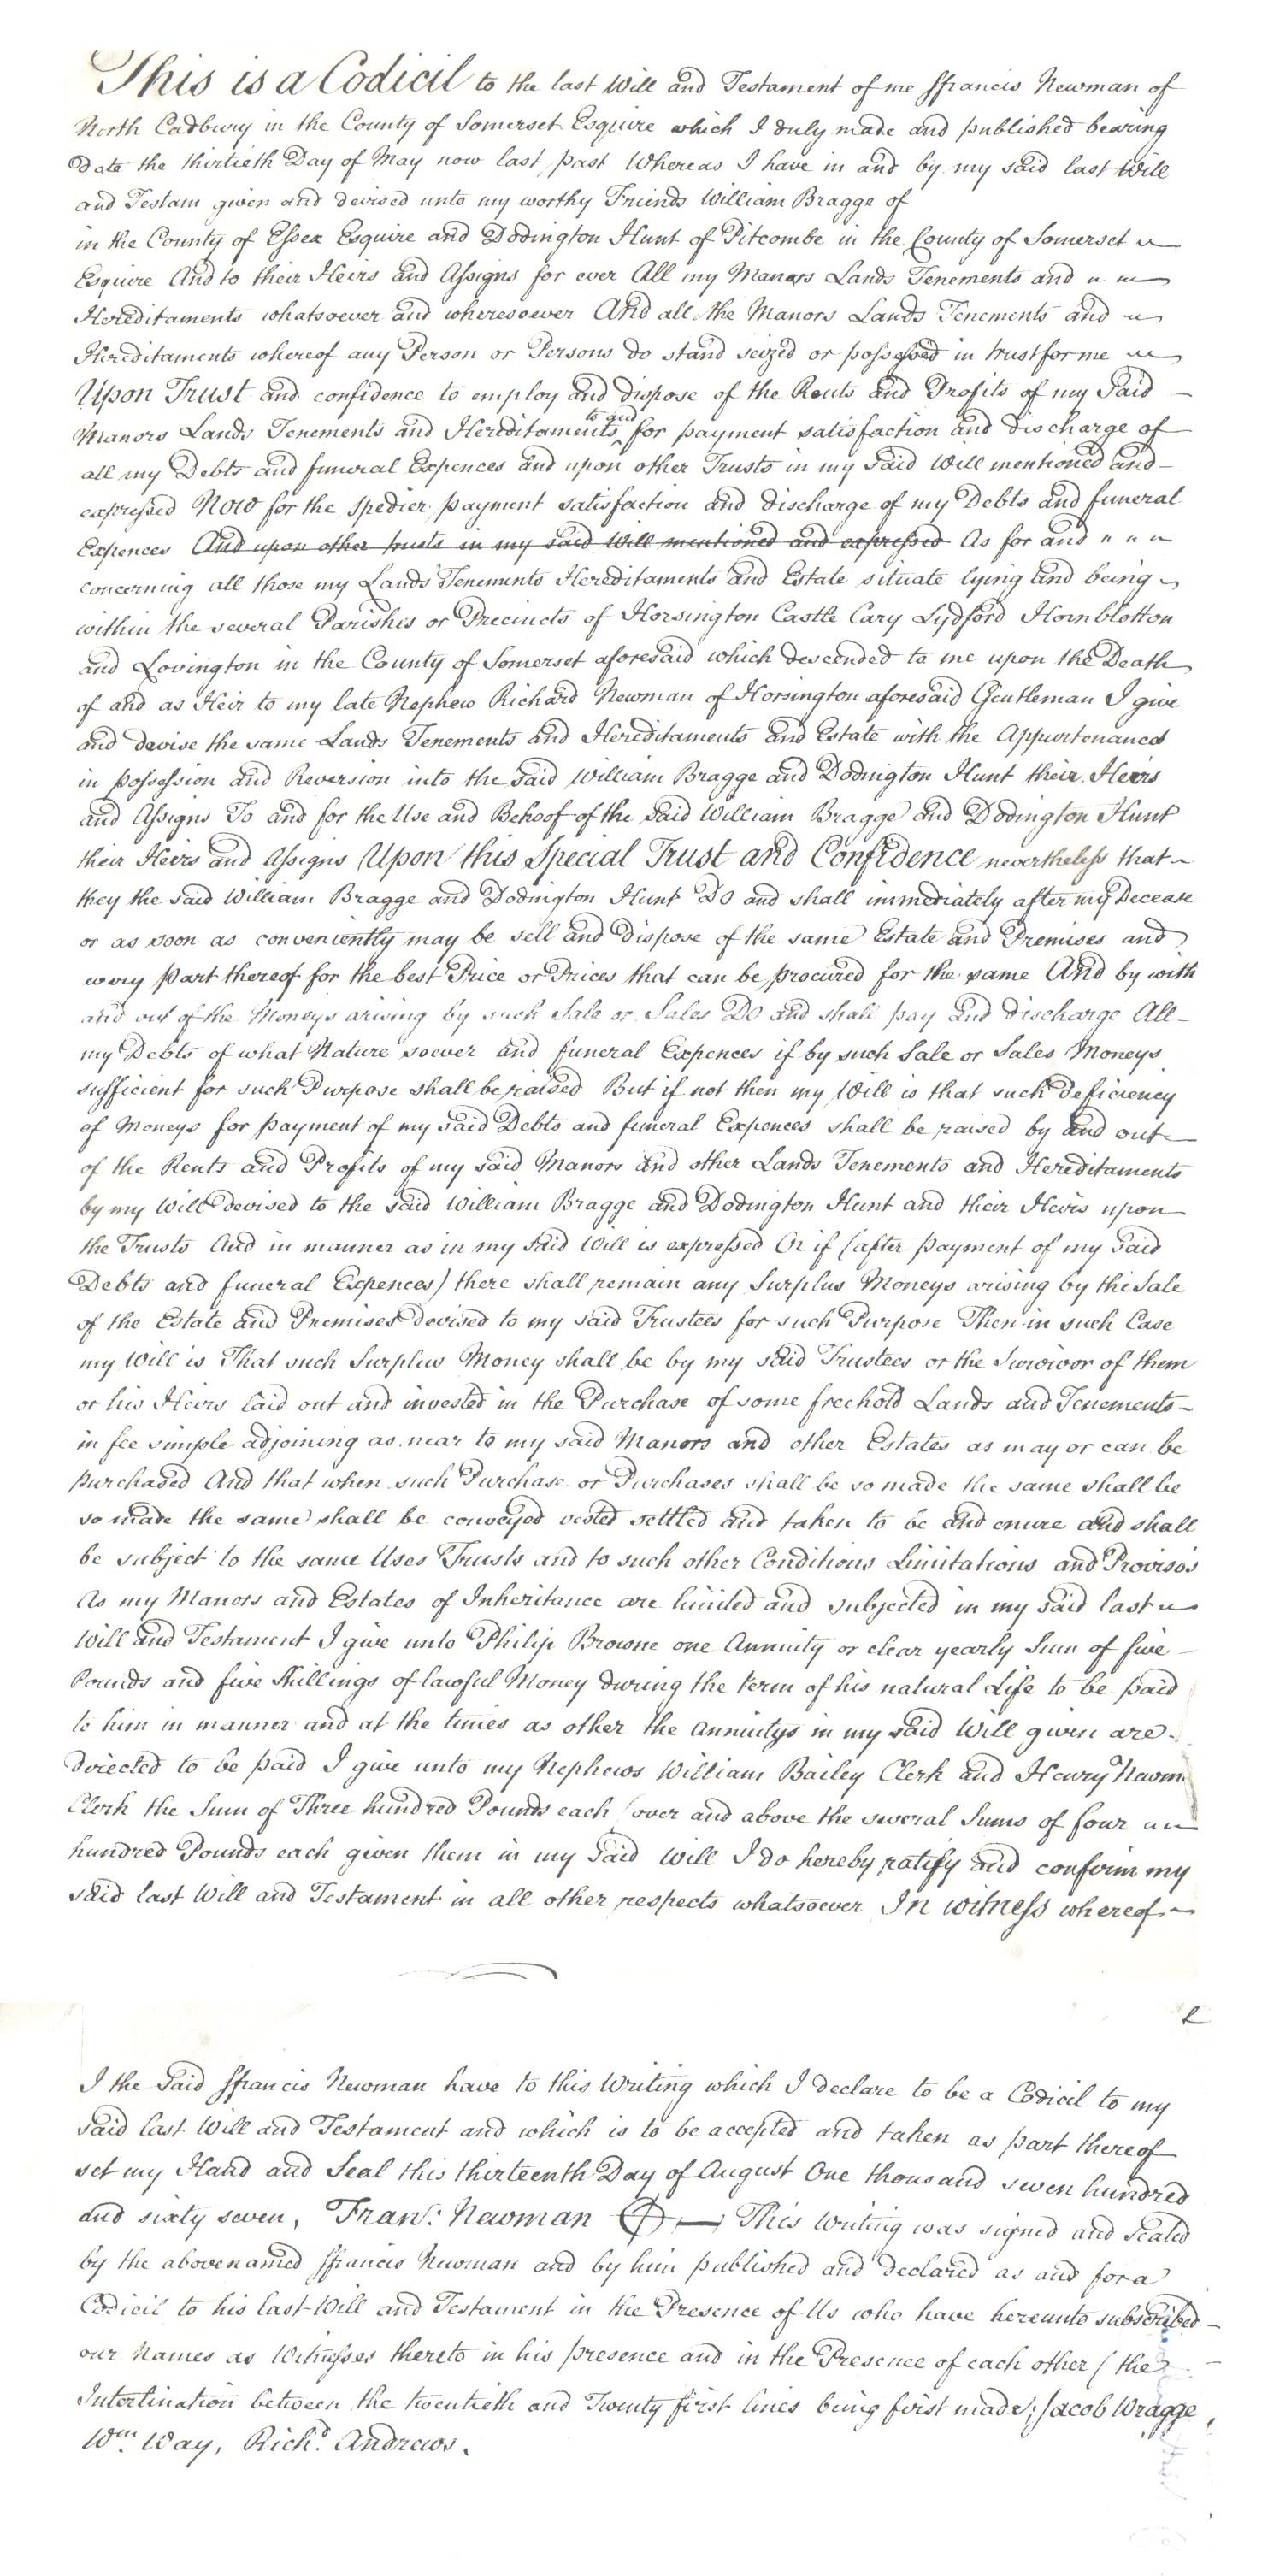 This is a Codicil to the last Will and Testament of me ffrancis Newman of
North Cadbury in the County of Somerset Esquire which I duly made and published bearing
Date the thirtieth Day of May now last past Whereas I have in and by my said last Will
and Testam given and devised unto my worthy Friends William Bragge of
in the County of Essex Esquire and Dodington Hunt of Pitcombe in the County of Somerset
Esquire And to their Heirs and Assigns for ever All my Manors Lands Tenements and
Hereditaments whatsoever and wheresoever And all the Manors Lands Tenements and
Hereditaments whereof any Person or Persons do stand seized or possessed in trust for me
Upon Trust and confidence to employ and dispose of the Rents and Profits of my Said
Manors Lands Tenements and Hereditaments to and for payment satisfaction and discharge of
all my Debts and funeral Expences and upon other Trusts in my said Will mentioned and
expressed Now for the spedier payment satisfaction and discharge of my Debts and funeral
Expences And upon other trusts in my said Will mentioned and expressed As for and
concerning all those my Lands Tenements Hereditaments and Estate situate lying and being
within the several Parishes or Precincts of Horsington Castle Cary Lydford Hornblotton
and Lovington in the County of Somerset aforesaid which descended to me upon the Death
of and as Heir to my late Nephew Richard Newman of Horsington aforesaid Gentleman I give
and devise the same Lands Tenements and Hereditaments and Estate with the Appurtenances
in possession and Reversion into the said William Bragge and Dodington Hunt their Heirs
and Assigns To and for the Use and Behoof of the said William Bragge and Dodington Hunt
their Heirs and Assigns Upon this Special Trust and Confidence nevertheless that
they the said William Bragge and Dodington Hunt Do and shall immediately after my Decease
or as soon as conveniently may be sell and dispose of the same Estate and Premises and
every part thereof for the best Price or Prices that can be procured for the same And by with
and out of the Moneys arising by such Sale or Sales Do and shall pay and discharge All
my Debts of what Nature soever and funeral Expences if by such Sale or Sales Moneys
sufficient for such Purpose shall be raised But if not then my Will is that such deficiency
of Moneys for payment of my said Debts and funeral Expences shall be raised by and out
of the Rents and Profits of my said Manors and other Lands Tenements and Hereditaments
by my Will devised to the said William Bragge and Dodington Hunt and their Heirs upon
the Trusts and in manner as in my said Will is expressed Or if (after payment of my said
Debts and funeral Expences) there shall remain any Surplus Moneys arising by the Sale
of the Estate and Premises devised to my said Trustees for such Purpose Then in such Case
my Will is That such Surplus Money shall be by my said Trustees or the Survivor of them
or his Heirs laid out and invested in the Purchase of some freehold Lands and Tenements
in fee simple adjoining as near to my said Manors and other Estates as may or can be
purchased And that when such Purchase or Purchases shall be so made the same shall be
so made the same shall be conveyed vested settled and taken to be and enure and shall
be subject to the same Uses Trusts and to such other Conditions Limitations and Provisos
As my Manors and Estates of Inheritance are limited and subjected in my said last
Will and Testament I give unto Philip Browne one Annuity or clear yearly Sum of five
Pounds and five Shillings of lawful Money during the term of his natural Life to be paid
to him in manner and at the times as other the Annuitys in my said Will given are
directed to be paid I give unto my Nephews William Bailey Clerk and Henry Newm
Clerk the Sum of Three hundred Pounds each (over and above the several Sums of four
hundred Pounds each given them in my said Will I do hereby ratify and confirm my
said last Will and Testament in all other respects whatsoever In witness whereof
I the said ffrancis Newman have to this Writing which I declare to be a Codicil to my
said last Will and Testament and which is to be accepted and taken as part thereof
set my Hand and Seal this thirteenth Day of August One thousand seven hundred
and sixty seven, Fran.s Newman This Writing was signed and sealed
by the abovenamed ffrancis Newman and by him published and declared as and for a
Codicil to his last Will and Testament in the Presence of Us who have hereunto subscribed
our Names as Witnesses thereto in his presence and in the Presence of each other (the
Interlination between the twentieth and Twenty first lines being first made; Jacob Wragge,
Wm. Way, Richd. Andrews.